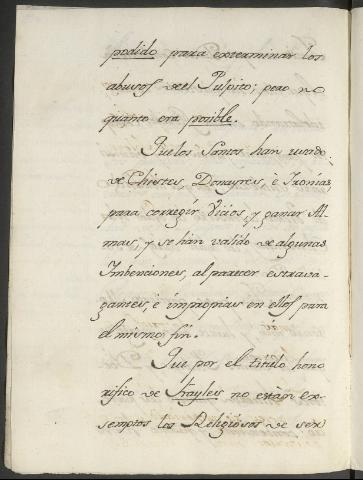 podido para exterminar los
abusos del Pulpito; pero no
quanto era posible.
Que los Santos han usado
de Chistes, Donayres, è Ironías,
para corregir Vicios, y ganar Al-
mas, y se hàn valido de algunas
Imbenciones, al parecer estrava-
gantes, è impropias en ellos para
el mismo fin.
Que por el titulo hono
rifico de Frayles no estàn ex-
semptos los Religiosos de ser